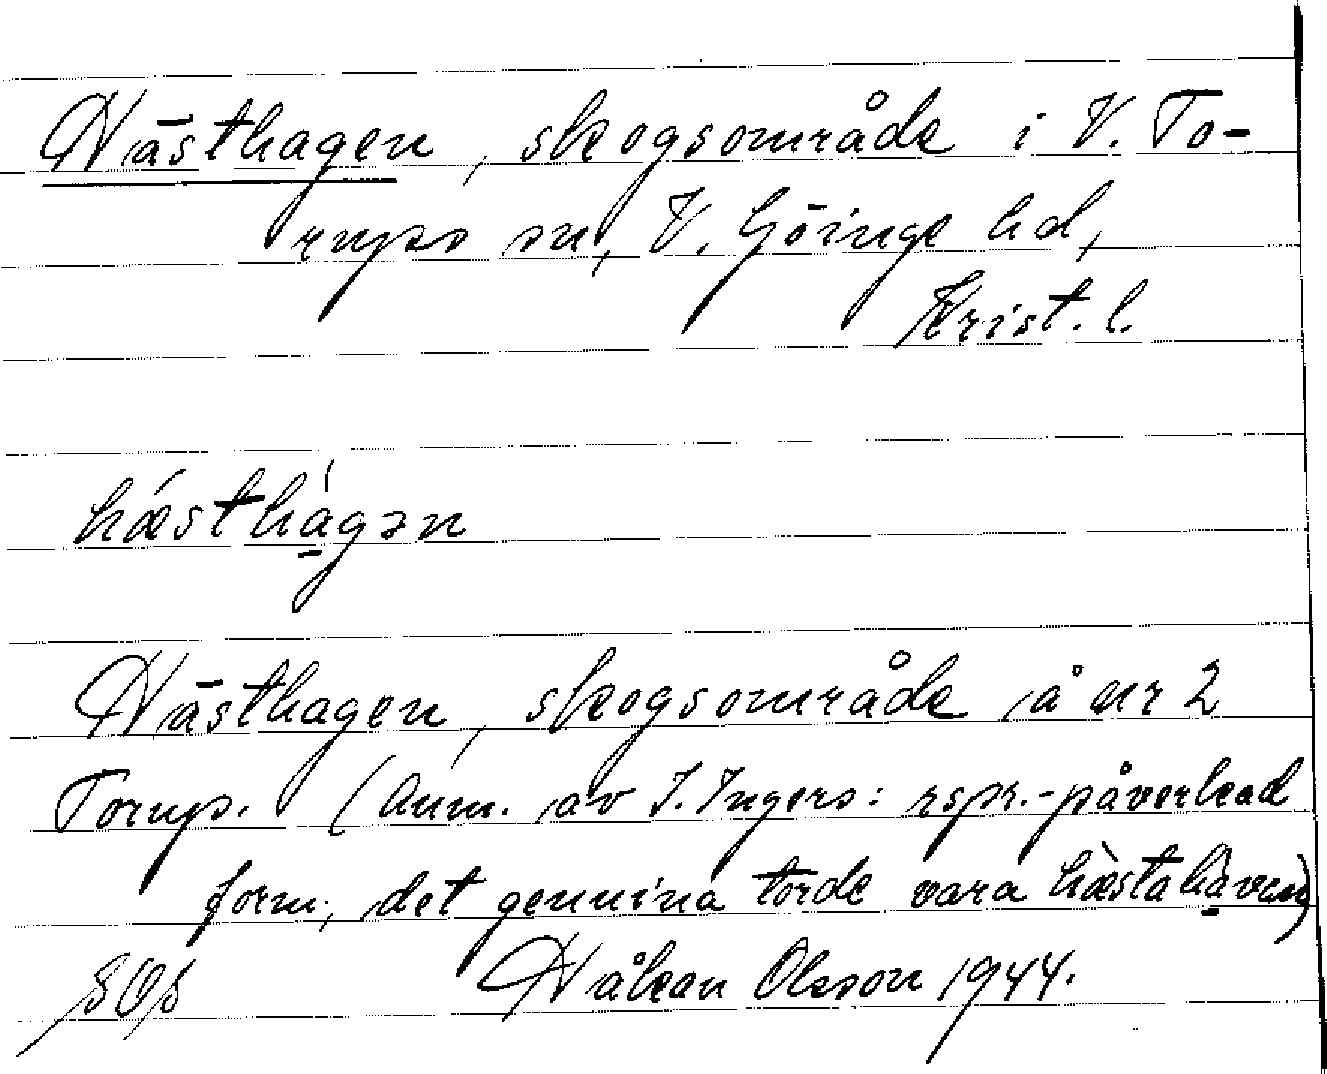 Hästhagen, skogsområde i V. To-
rups sn, V. Göinge hd,
Krist. l.
hǽsthágən
Hästhagen, skogsområde å nr 2
Torup. (Anm. av I. Ingers: rspr.-påverkad
form, det genuina torde vara hæ̀stahavən)
SOS Håkan Olsson 1944.